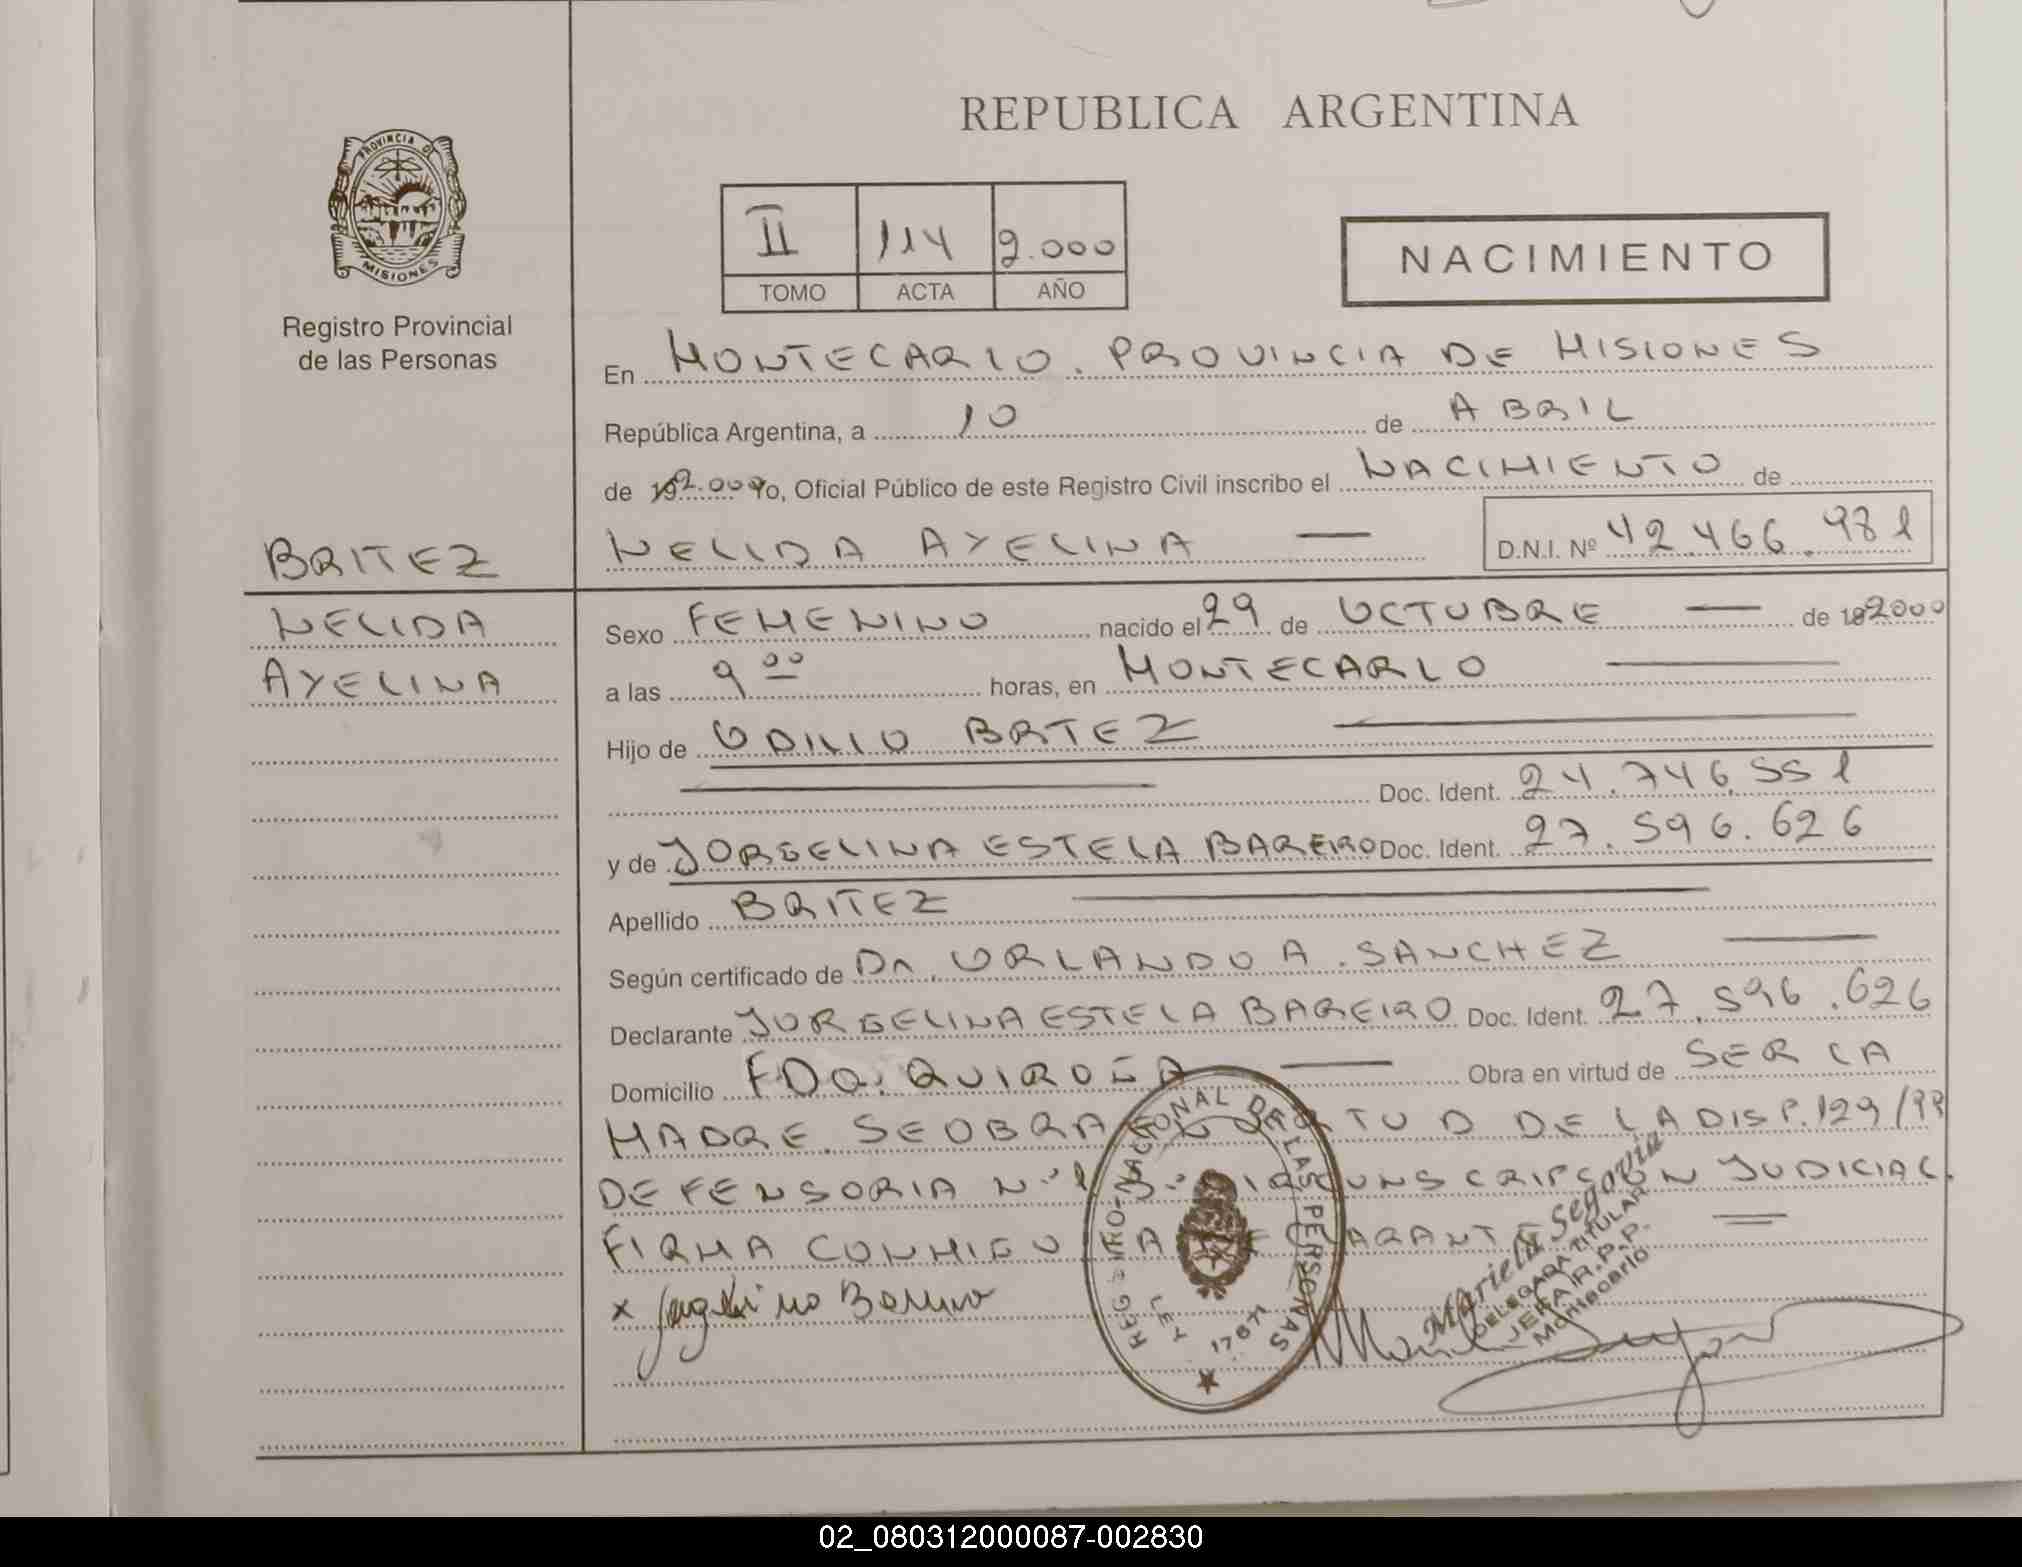 REPUBLICA ARGENTINA
PROVINCIA DE
MISIONES
Registro Provincial
de las Personas
II 114 2.000
TOMO ACTA AÑO
NACIMIENTO
En MONTECARLO. PROVINCIA DE MISIONES
República Argentina, a 10 de ABRIL
de 2.000 Yo, Oficial Público de este Registro Civil inscribo el NACIMIENTO de
BRITEZ
NELIDA AYELINA — D.N.I. Nº 42.466.981
NELIDA
AYELINA
Sexo FEMENINO nacido el 29 de OCTUBRE — de 192000
a las 9 00 horas, en MONTECARLO
Hijo de ODILIO BRTEZ
Doc. Ident. 24.746.551
y de JORGELINA ESTELA BAREIRO Doc. Ident. 27.596.626
Apellido BRITEZ
Según certificado de Dr. ORLANDO A. SANCHEZ
Declarante JORGELINA ESTELA BAREIRO Doc. Ident. 27.596.626
Domicilio FDO. QUIROGA — Obra en virtud de SER LA
MADRE. SE OBRA EN VIRTUD DE LA DISP. 129/99
DEFENSORIA Nº 1 3º CIRCUNSCRIPCION JUDICIAL.
FIRMA CONMIGO LA DECLARANTE =
x
REGISTRO NACIONAL DE LAS PERSONAS
LEY 17671
Mariela Segovia
DELEGADA TITULAR
JEFA R.P.P.
Montecarlo
02_080312000087-002830